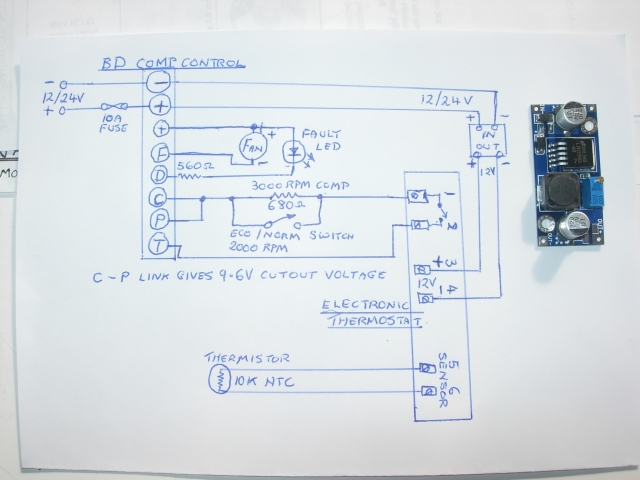 BD COMP CONTROL
−
12/24V
+
10A
FUSE
−
+
+
F
D
C
P
T
560Ω
FAN
+
−
FAULT
LED
3000 RPM COMP
680Ω
ECO/NORM SWITCH
2000 RPM
C-P LINK GIVES 9.6V CUTOUT VOLTAGE
12/24V
+ −
IN
OUT
+ −
12V
1
2
3 +
12V
4 −
ELECTRONIC
THERMOSTAT
5 6
SENSOR
THERMISTOR
10K NTC
MO